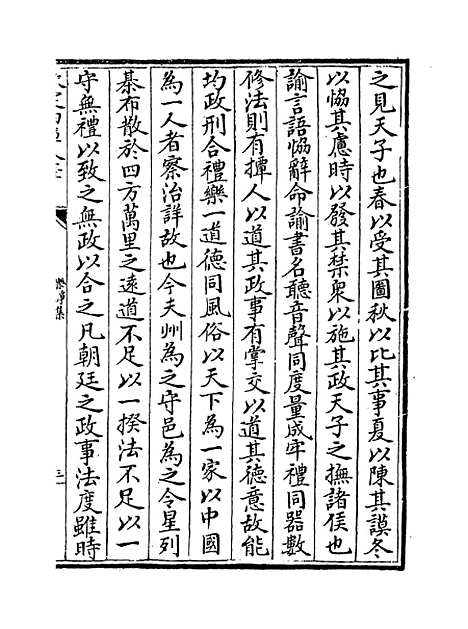 之見天子也春以受其圖秋以比其事夏以陳其謨冬
以恊其慮時以發其禁衆以施其政天子之撫諸侯也
諭言語恊辭命諭書名聽音聲同度量成牢禮同器數
修法則有撢人以道其政事有掌交以道其徳意故能
均政刑合禮樂一道徳同風俗以天下為一家以中國
為一人者察治詳故也今夫州為之守邑為之令星列
棊布散於四方萬里之逺道不足以一揆法不足以一
守無禮以致之無政以合之凡朝廷之政事法度雖時
集
三